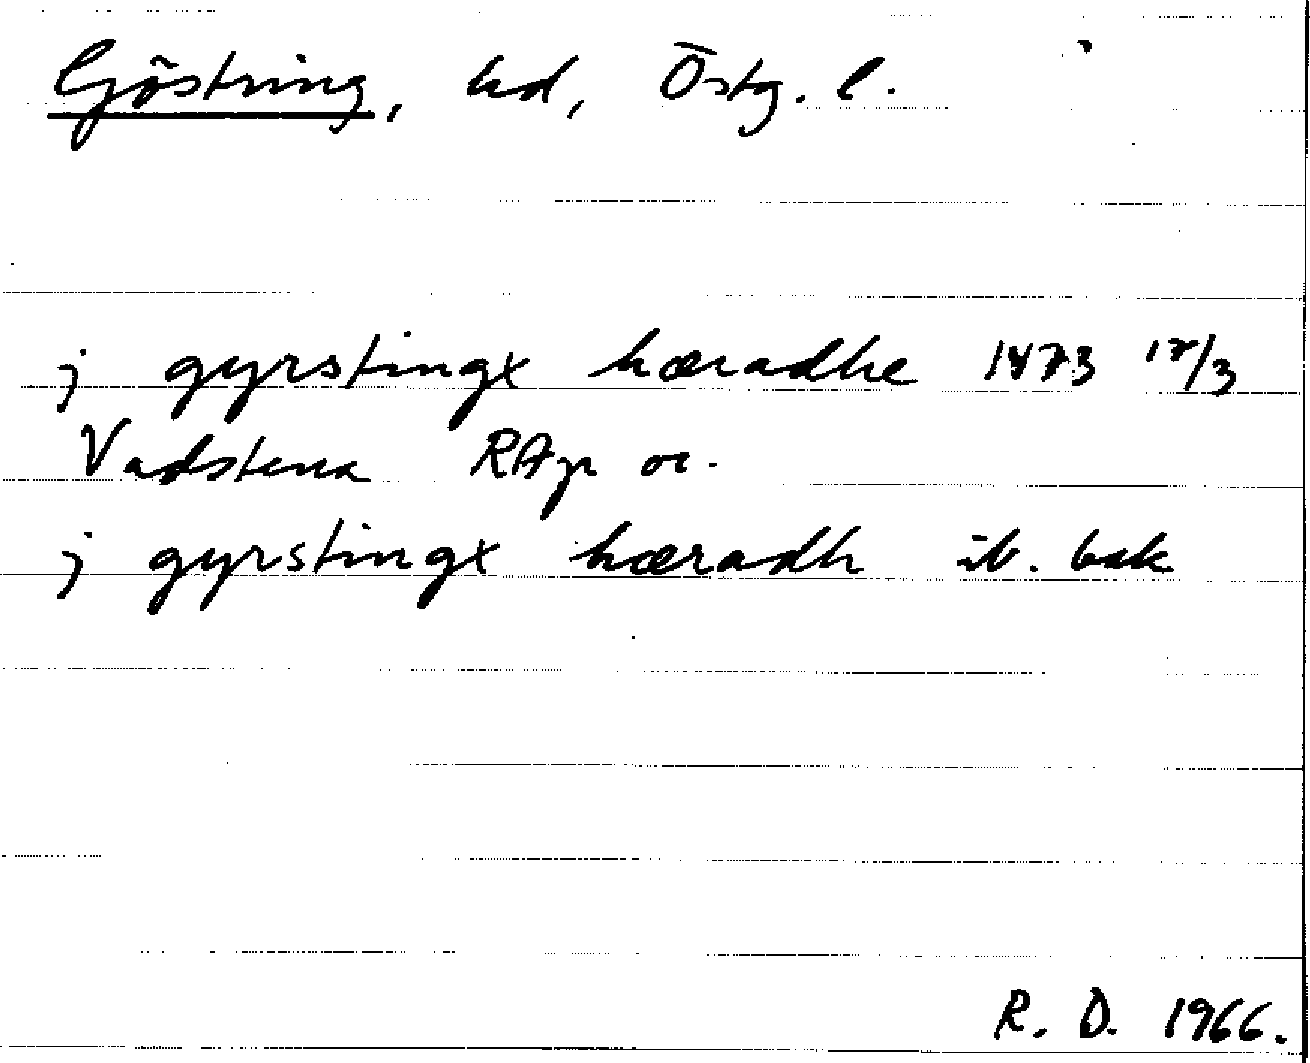 Göstring, hd, Östg. l.
j gyrstingx hæradhe 1473 12/3
Vadstena RAp or.
j gyrstingx hæradh ib. bak
R. D. 1966.